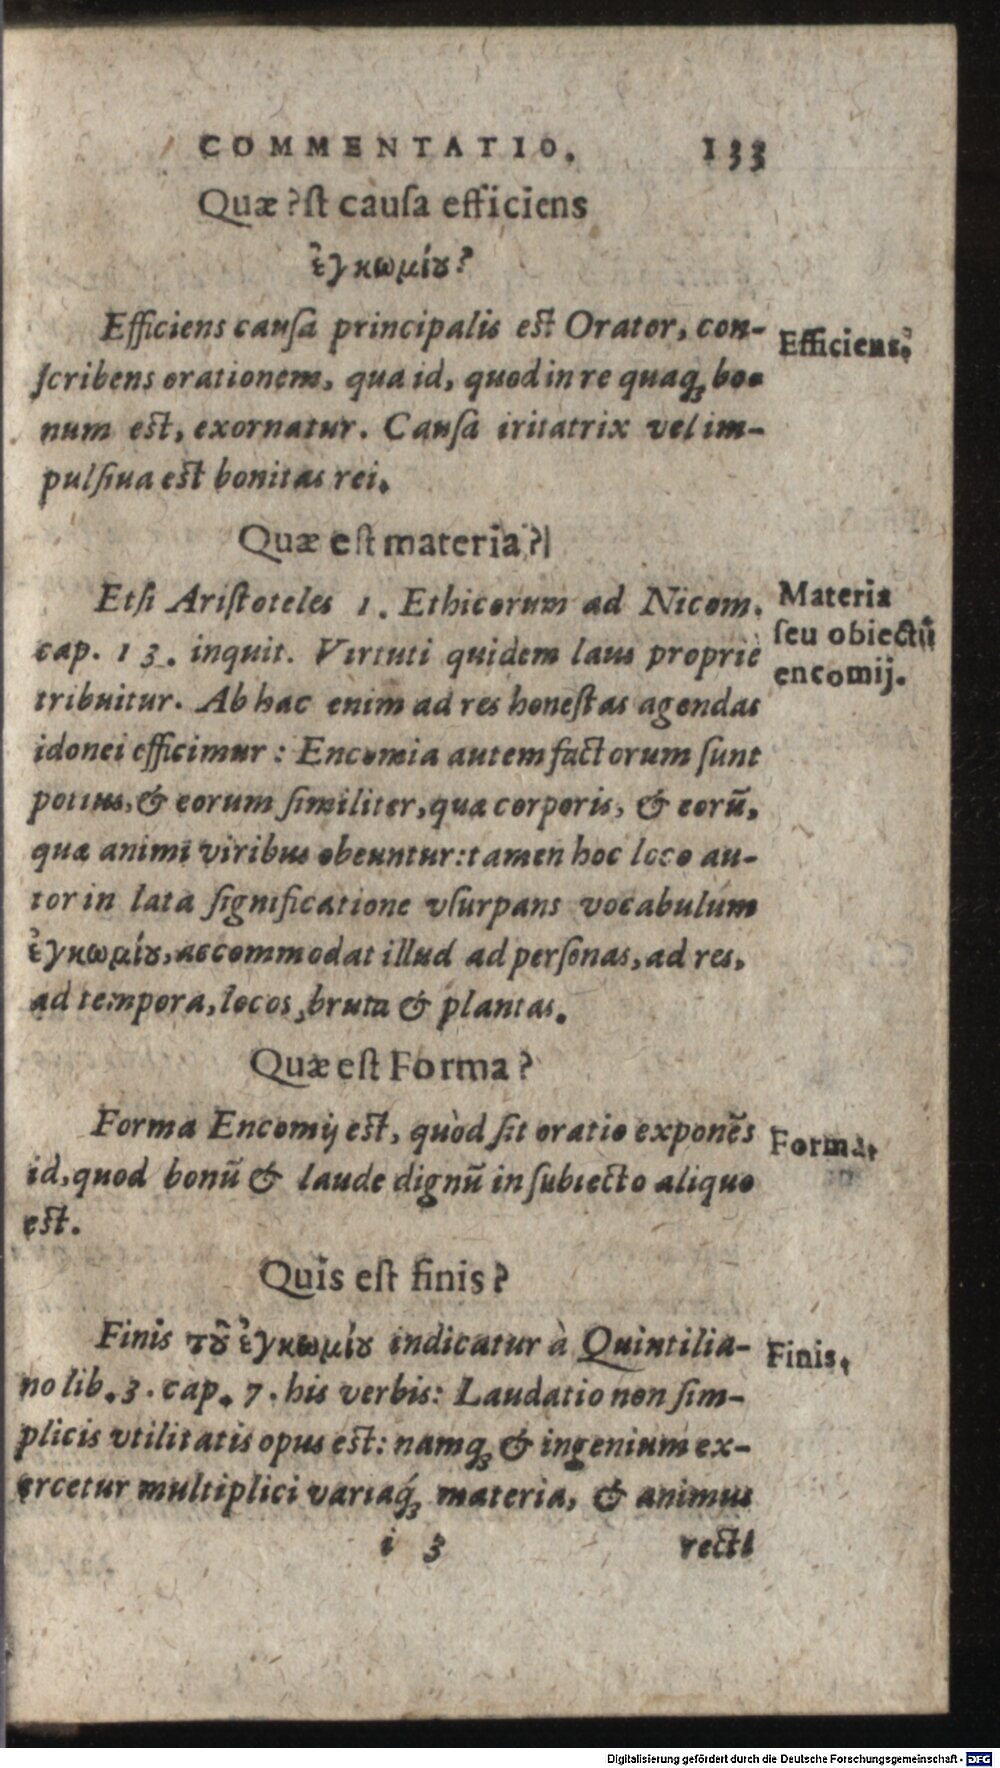 COMMENTATIO. 133
Quæ ?ſt cauſa efficiens
ἐγκωμίου?
Efficiens cauſa principalis est Orator, con-
ſcribens orationem, qua id, quod in re quaq; bo-
num est, exornatur. Cauſa iritatrix vel im-
pulſiua est bonitas rei.
Efficiens.
Quæ eſt materia?
Etſi Ariſtoteles 1. Ethicorum ad Nicom.
cap. 13. inquit. Virtuti quidem laus propriè
tribuitur. Ab hac enim ad res honeſtas agendas
idonei efficimur: Encomia autem factorum ſunt
potius, & eorum ſimiliter, quæ corporis, & eorū,
quæ animi viribus obeuntur: tamen hoc loco au-
tor in lata ſignificatione vſurpans vocabulum
ἐγκωμίου, accommodat illud ad perſonas, ad res,
ad tempora, locos, bruta & plantas.
Materia
ſeu obiectū
encomij.
Quæ eſt Forma?
Forma Encomij est, quòd ſit oratio exponēs
id, quod bonū & laude dignū in ſubiecto aliquo
est.
Forma.
Quis eſt finis?
Finis τοῦ ἐγκωμίου indicatur à Quintilia-
no lib. 3. cap. 7. his verbis: Laudatio non ſim-
plicis vtilitatis opus est: namq; & ingenium ex-
ercetur multiplici variaq́; materia, & animus
Finis.
i 3 recti
Digitalisierung gefördert durch die Deutsche Forschungsgemeinschaft - DFG